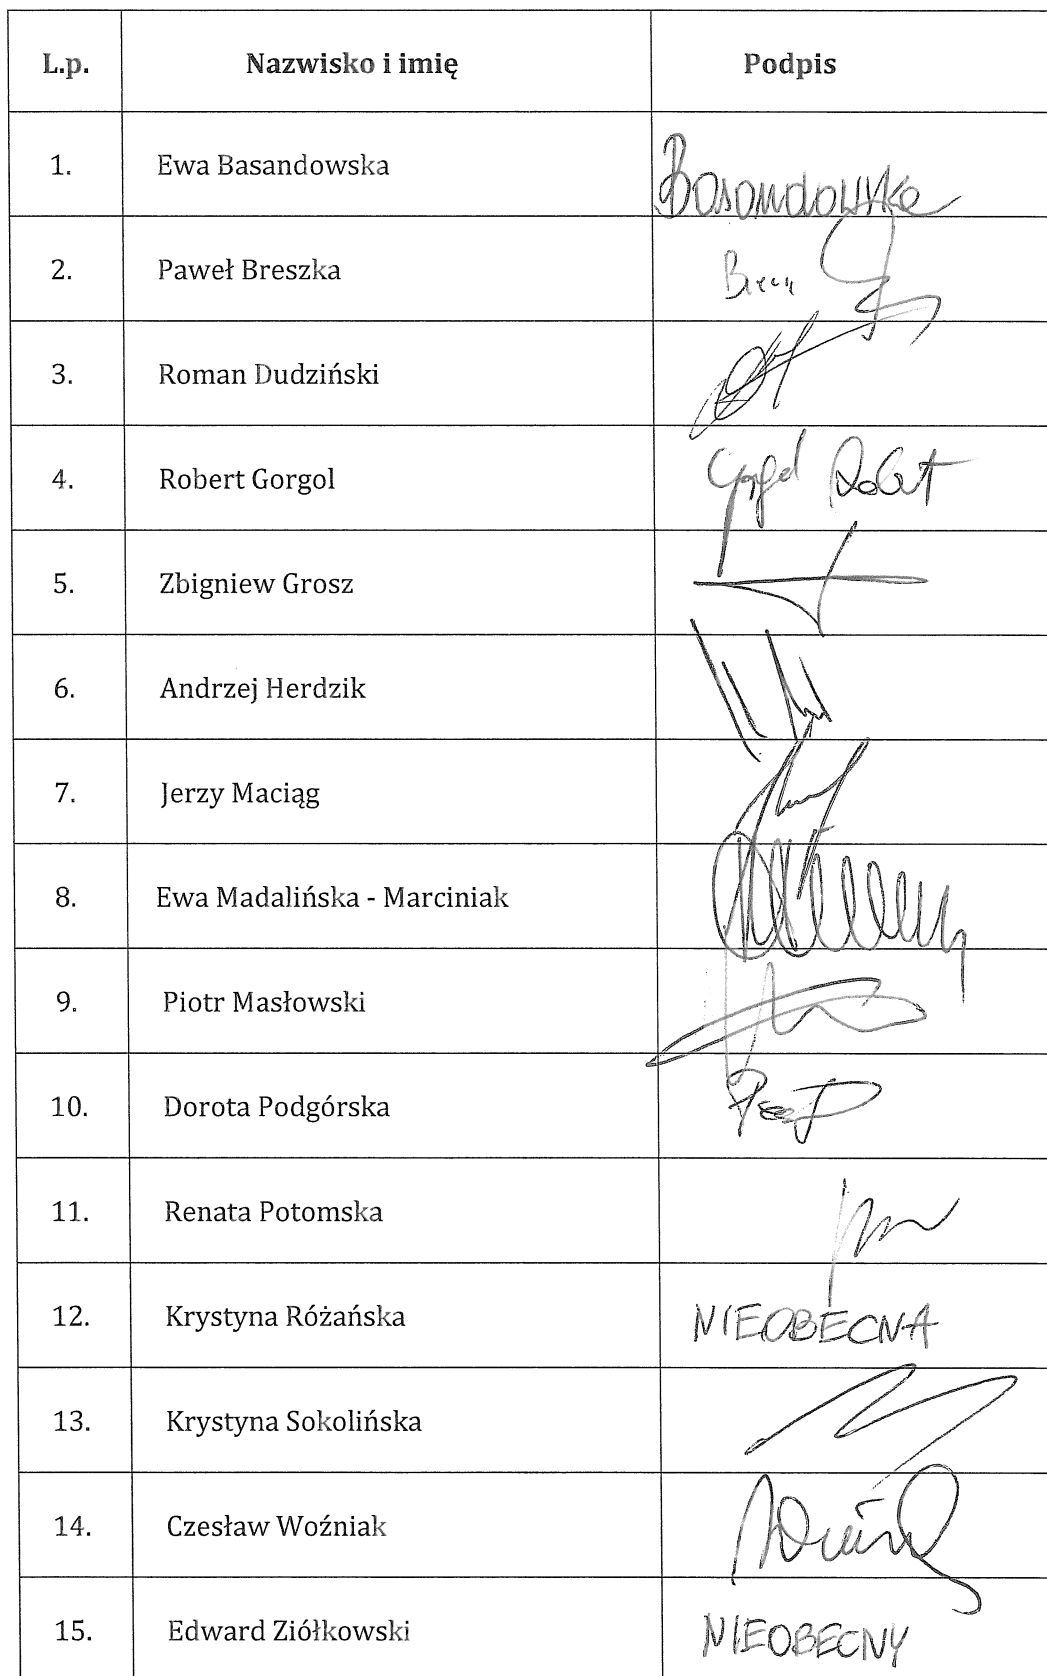 L.p. Nazwisko i imię Podpis
1. Ewa Basandowska Basandowska
2. Paweł Breszka
3. Roman Dudziński
4. Robert Gorgol Gorgol Robert
5. Zbigniew Grosz
6. Andrzej Herdzik
7. Jerzy Maciąg
8. Ewa Madalińska - Marciniak
9. Piotr Masłowski
10. Dorota Podgórska
11. Renata Potomska
12. Krystyna Różańska NIEOBECNA
13. Krystyna Sokolińska
14. Czesław Woźniak
15. Edward Ziółkowski NIEOBECNY